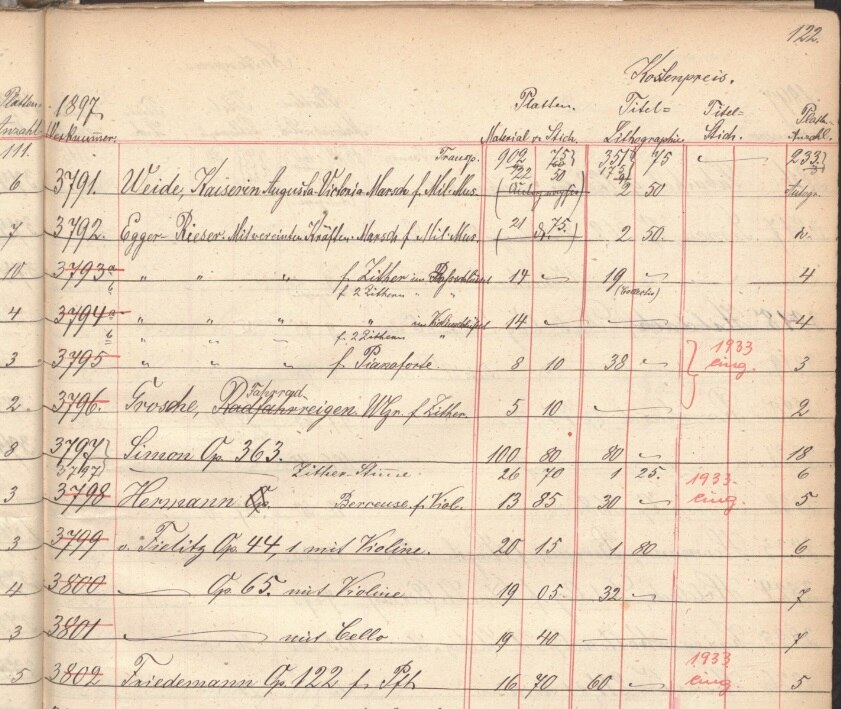 122.
Kostenpreis.
Platten- 1897 Platten Titel= Titel= Platten-
Anzahl Werknummer. Material u. Stich. Lithographie Stich. Anzahl.
111. Transp. 902 75 351 75 233
722 50 173
6 3791. Weide, Kaiserin Augusta Victoria Marsch f. Mil. Mus. (Autographie) 2 50 Autogr.
7 3792. Egger-Rieser. Mit vereinten Kräften. Marsch f. Mil. Mus. (21 75.) 2 50.
10 3793a " " " f. Zither im Bassschlüssel 14 19 4
b f. 2 Zithern " "
4 3794a " " " " im Violinschlüssel 14 4
b f. 2 Zithern "
3 3795 " " " f. Pianoforte. 8 10 38 1933 eing. 3
2 3796. Grosche, Radfahrreigen Fahrrad Wlzr. f. Zither. 5 10 2
8 3797 Simon Op. 363. 100 80 80 18
3797 Zither-Stimme 26 70 1 25. 6
3 3798 Hermann Op. Berceuse f. Viol. 13 85 30 1933 eing. 5
3 3799 v. Fielitz Op. 44, 1 mit Violine. 20 15 1 80 6
4 3800 Op. 65. mit Violine 19 05. 32 7
3 3801 mit Cello 19 40 7
5 3802 Friedemann Op. 122 f. Pft 16 70 60 1933 eing. 5